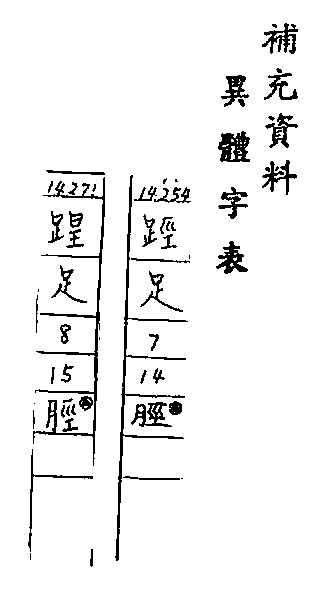 補充資料
異體字表
14.254
踁
足
7
14
脛
14.271
足
8
15
脛